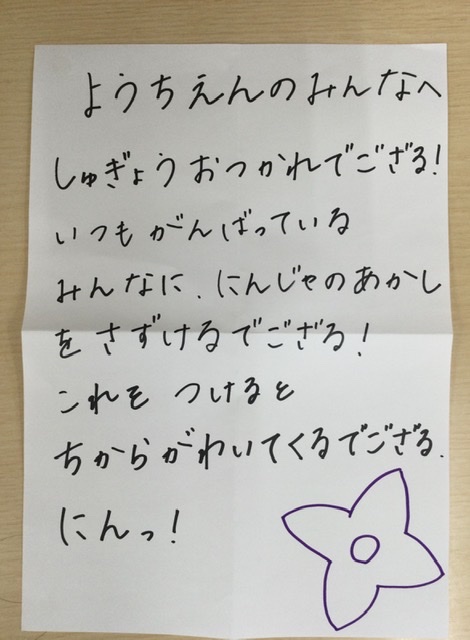 ようちえんのみんなへ
しゅぎょうおつかれでござる!
いつもがんばっている
みんなに、にんじゃのあかし
をさずけるでござる!
これをつけると
ちからがわいてくるでござる.
にんっ!